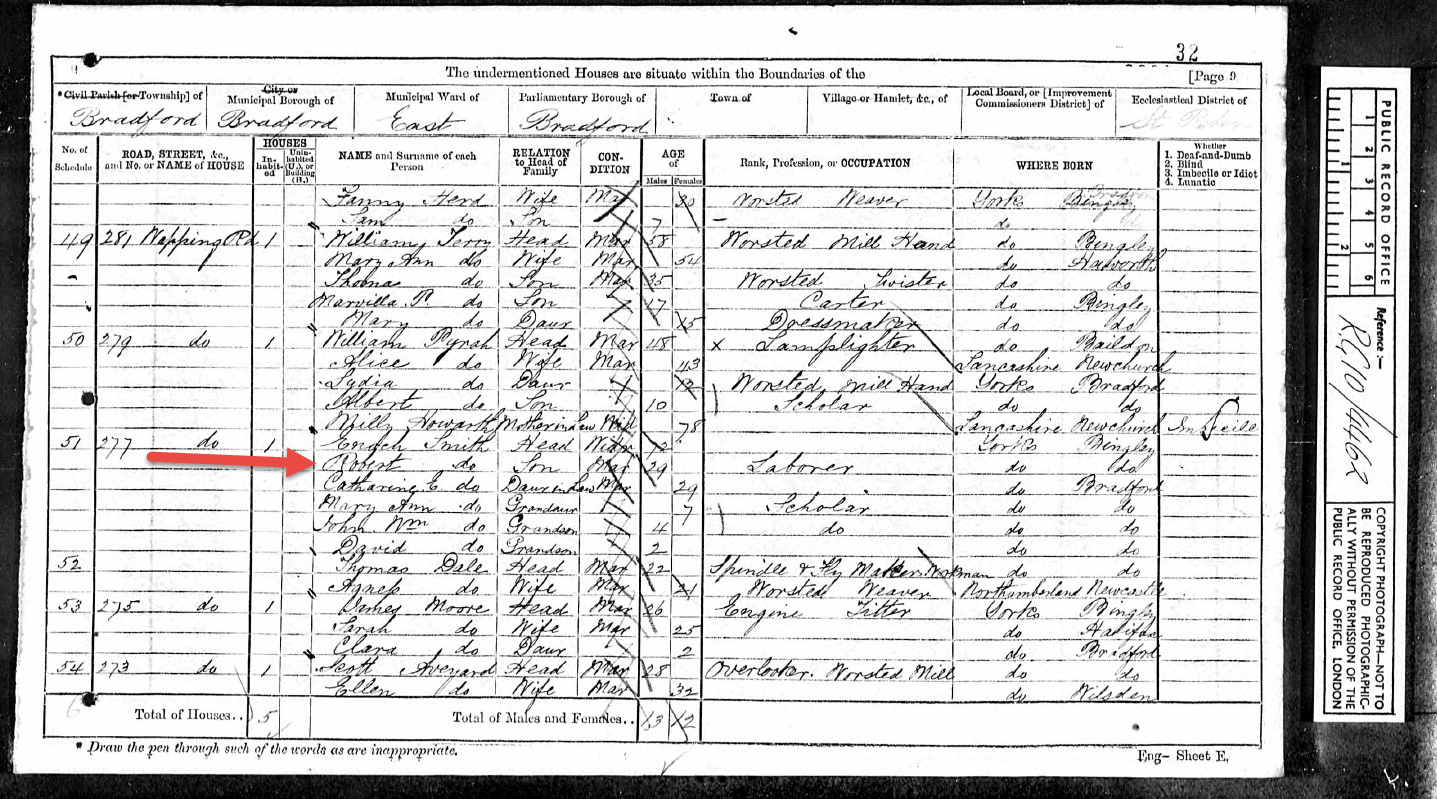 32
The undermentioned Houses are situate within the Boundaries of the [Page 9
*Civil Parish [or Township] of City or Municipal Borough of Municipal Ward of Parliamentary Borough of Town of Village or Hamlet, &c., of Local Board, or [Improvement Commissioners District] of Ecclesiastical District of
Bradford Bradford East Bradford St
No. of Schedule ROAD, STREET, &c., and No. or NAME of HOUSE HOUSES Inhabited Uninhabited (U.), or Building (B.) NAME and Surname of each Person RELATION to Head of Family CONDITION AGE of Males Females Rank, Profession, or OCCUPATION WHERE BORN Whether 1. Deaf-and-Dumb 2. Blind 3. Imbecile or Idiot 4. Lunatic
Fanny Herd Wife Mar 30 Worsted Weaver Yorks Bingley
Sam do Son 7 do
49 281 Wapping Rd 1 William Terry Head Mar 58 Worsted Mill Hand do Bingley
Mary Ann do Wife Mar 54 do Haworth
Thomas do Son Mar 35 Worsted Twister do do
Marvilla P. do Son 17 Carter do Bingley
Mary do Daur 15 Dressmaker do do
50 279 do 1 William Pyrah Head Mar 48 x Lamplighter do Baildon
Alice do Wife Mar 43 Lancashire Newchurch
Lydia do Daur 12 Worsted Mill Hand Yorks Bradford
Albert do Son 10 Scholar do do
Howarth Mother in Law Wid 78 Lancashire Newchurch Imbecile
51 277 do 1 Enoch Smith Head 72 Yorks Bingley
Robert do Son Mar 29 Laborer do do
Catharine E do Daur in Law Mar 29 do Bradford
Mary Ann do Grandaur 7 Scholar do do
John Wm do Grandson 4 do do do
David do Grandson 2 do do
52 Thomas Dale Head Mar 22 Spindle & Fly Maker Workman do do
Agness do Wife Mar 21 Worsted Weaver Northumberland Newcastle
53 275 do 1 James Moore Head Mar 26 Engine Fitter Yorks Bingley
Sarah do Wife Mar 25 do Halifax
Clara do Daur 2 do Bradford
54 273 do 1 Scott Aveyard Head Mar 28 Overlooker. Worsted Mill do do
Ellen do Wife Mar 32 do Wilsden
Total of Houses.. 5 Total of Males and Females.. 13 12
* Draw the pen through such of the words as are inappropriate.
Eng- Sheet E.
PUBLIC RECORD OFFICE
1 2 3 4 5 6
1 2
Reference :-
RG10/4462
COPYRIGHT PHOTOGRAPH-NOT TO BE REPRODUCED PHOTOGRAPHICALLY WITHOUT PERMISSION OF THE PUBLIC RECORD OFFICE, LONDON